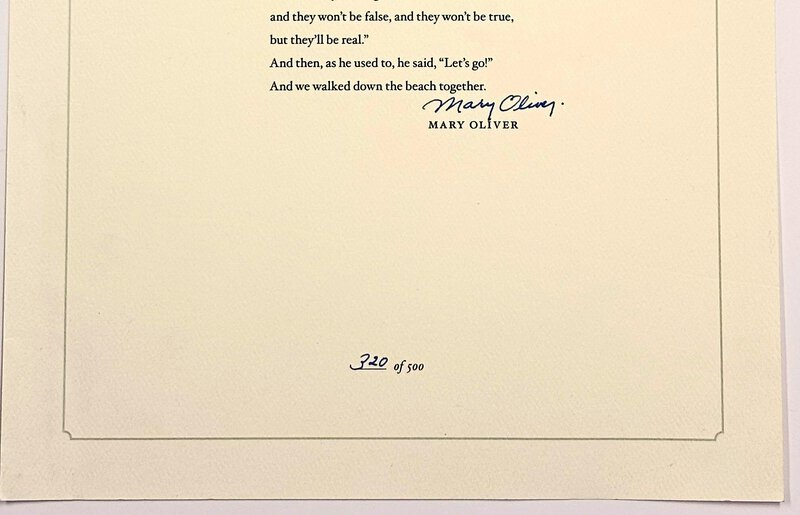 and they won't be false, and they won't be true,
but they'll be real.”
And then, as he used to, he said, “Let's go!”
And we walked down the beach together.
Mary Oliver.
MARY OLIVER
320 of 500